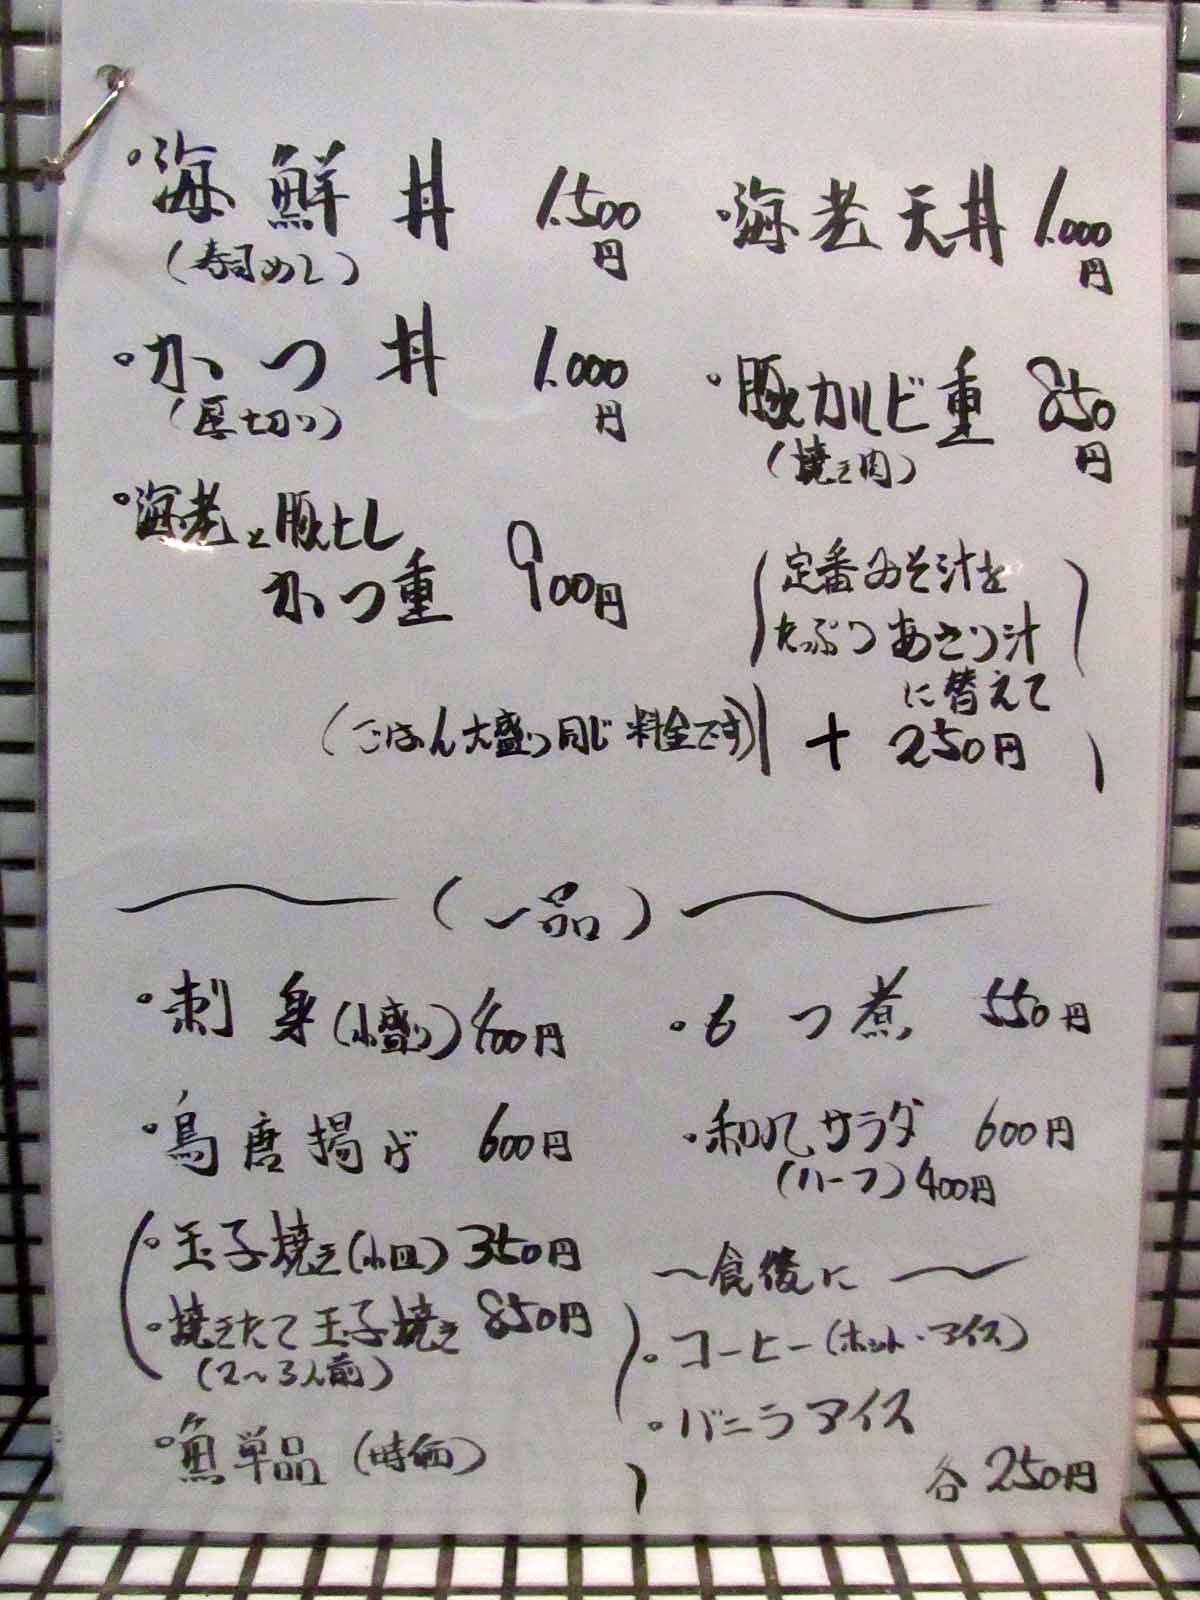 ・海鮮丼 1.500円
(寿司めし)
・海老天丼 1.000円
・かつ丼 1.000円
(厚切り)
・豚カルビ重 850円
(焼き肉)
・海老と豚ヒレ
かつ重 900円
(定番みそ汁を
たっぷりあさり汁
に替えて
+250円)
(ごはん大盛り同じ料金です)
(一品)
・刺身(小盛り)400円
・もつ煮 550円
・鳥唐揚げ 600円
・和風サラダ 600円
(ハーフ)400円
・玉子焼き(小皿)350円
・焼きたて玉子焼き 850円
(2〜3人前)
・魚単品(時価)
〜食後に〜
・コーヒー(ホット・アイス)
・バニラアイス
各250円